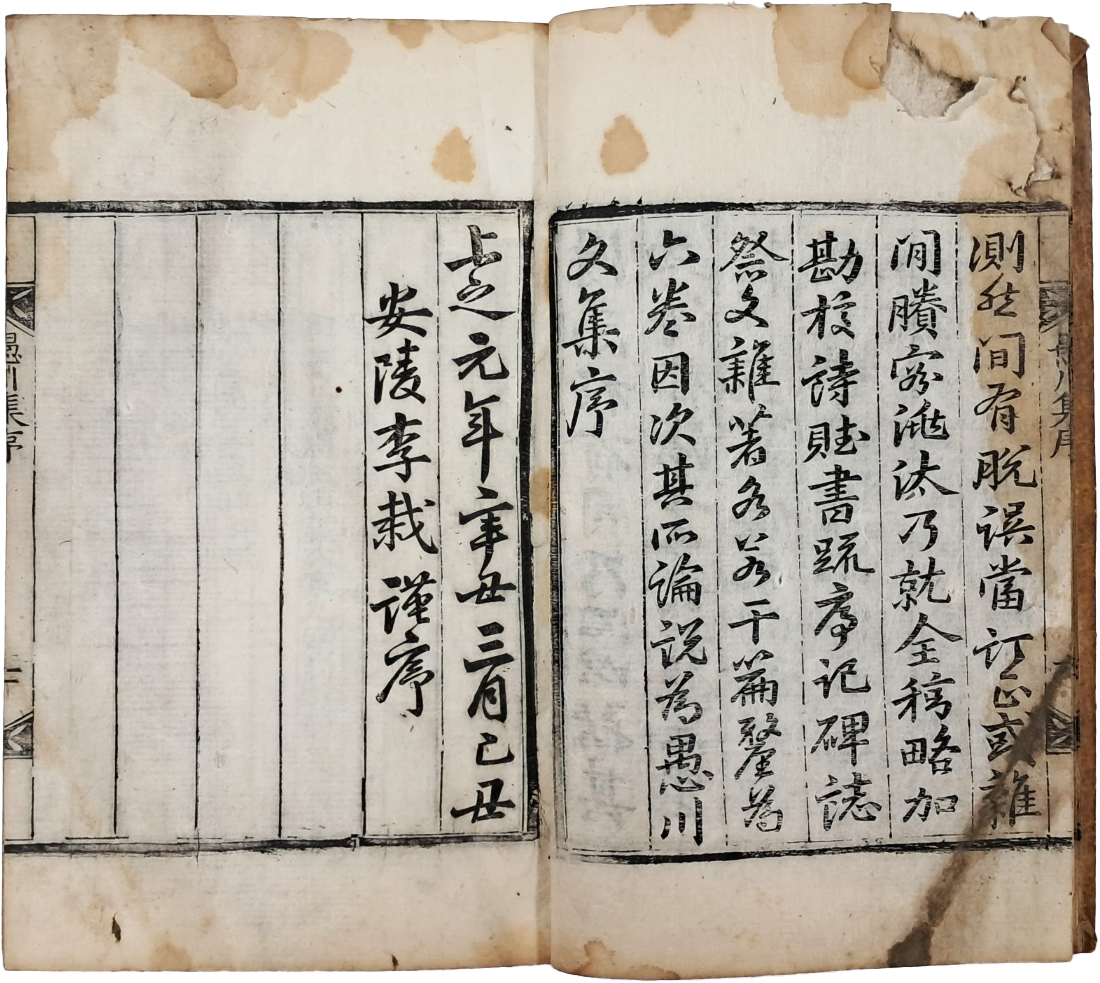 測然間有脫誤當訂正或雜
閒賸容淘汰乃就全稿略加
勘校詩賦書疏序記碑誌
祭文雜著各若干篇釐為
六卷因次其所論說為愚川
文集序
上之元年辛丑三月己丑
安陵李栽謹序
愚川集序